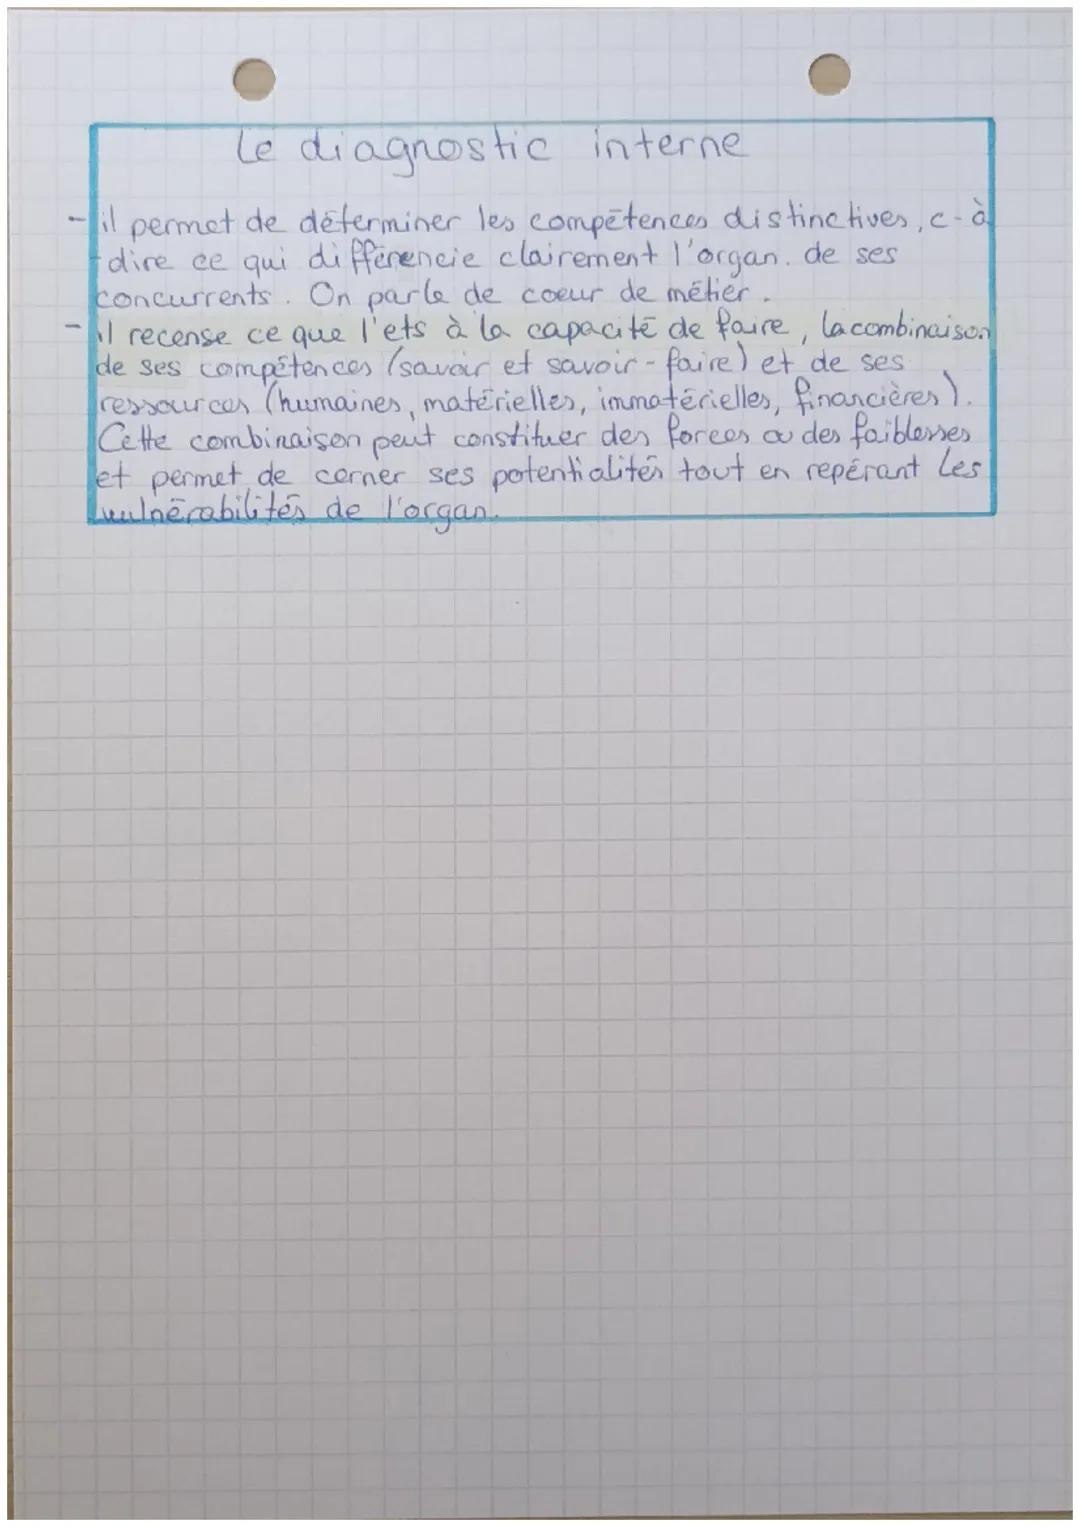 Le diagnostic interne
- il permet de déterminer les compétences distinctives, c-à
-dire ce qui différencie clairement l'organ. de ses
concurrents. On parle de coeur de métier.
- il recense ce que l'ets à la capacité de faire, la combinaison
de ses compétences (savoir et savoir-faire) et de ses
ressources (humaines, matérielles, immatérielles, financières).
Cette combinaison peut constituer des forces ou des faiblesses
et permet de cerner ses potentialités tout en repérant les
vulnérabilités de l'organ.